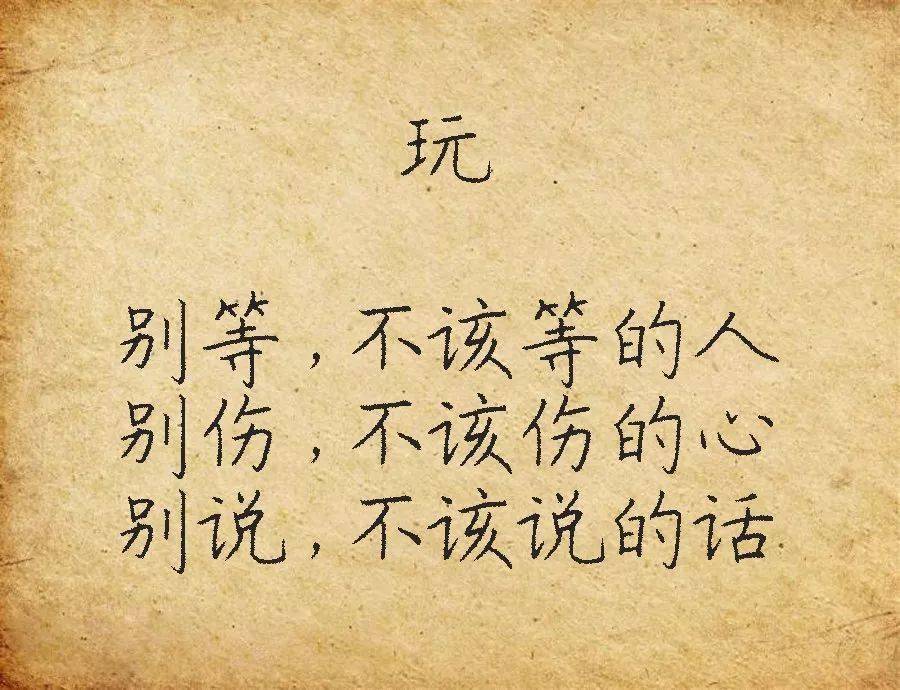 玩
别等，不该等的人
别伤，不该伤的心
别说，不该说的话